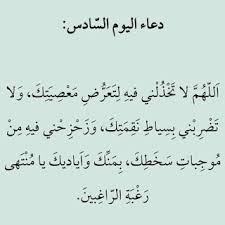 دعاء اليوم السّادس:
اَللّهُمَّ لا تَخْذُلْني فيهِ لِتَعَرُّضِ مَعْصِيَتِكَ، وَلا
تَضْرِبْني بِسِياطِ نَقِمَتِكَ، وَزَحْزِحْني فيهِ مِنْ
مُوجِباتِ سَخَطِكَ، بِمَنِّكَ وَاَياديكَ يا مُنْتَهى
رَغْبَةِ الرّاغِبينَ.